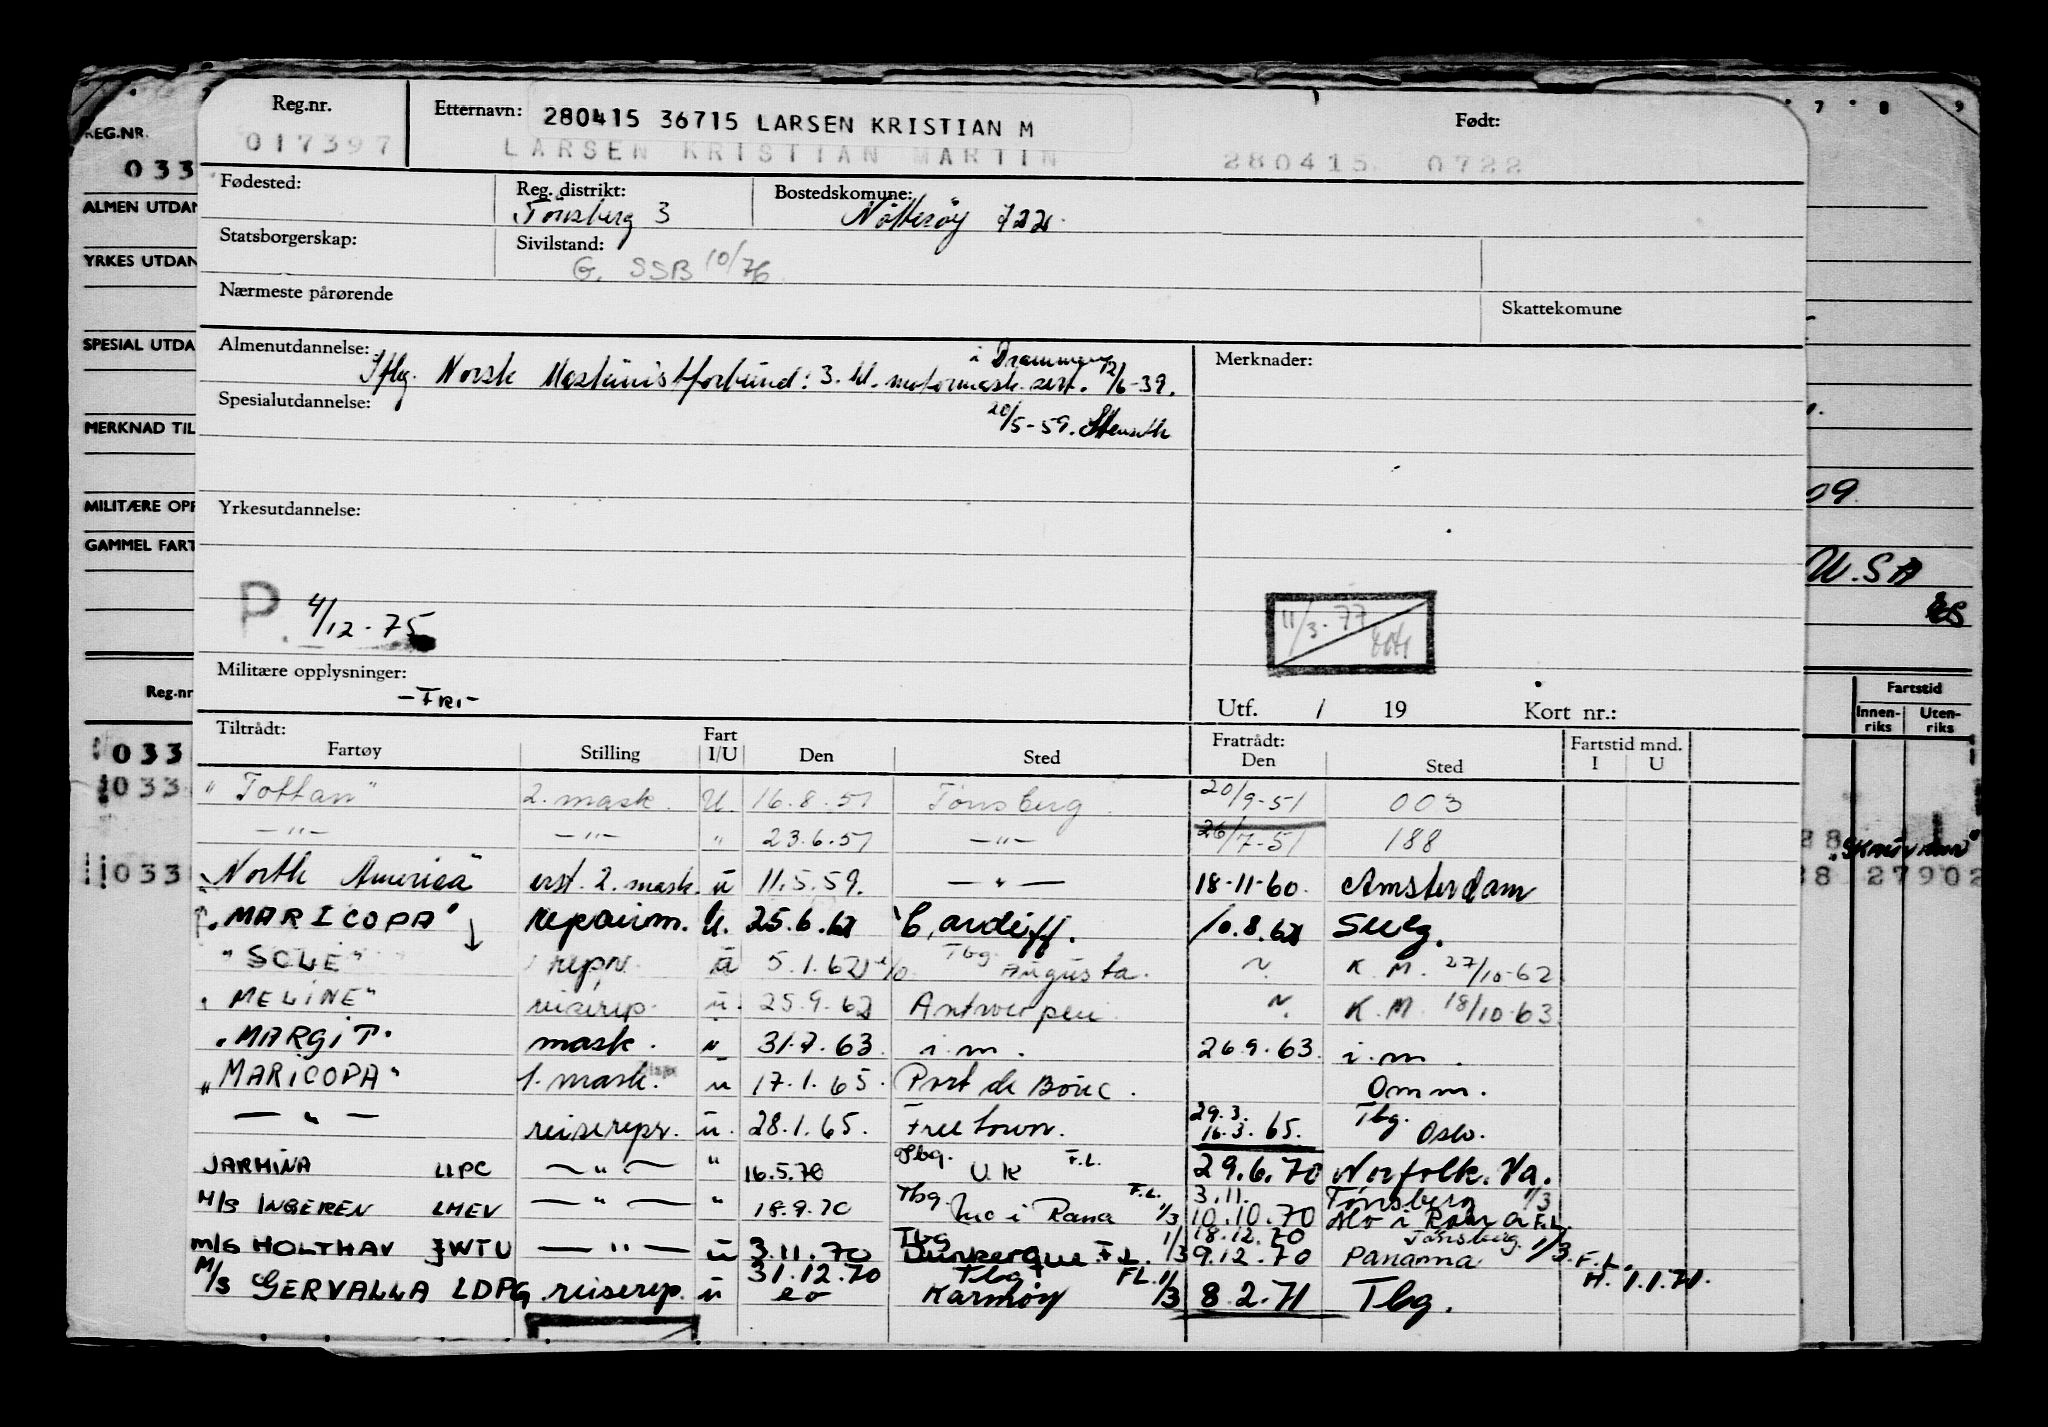 Reg.nr. Etternavn: 280415 36715 LARSEN KRISTIAN M Født:
017397 LARSEN KRISTIAN MARTIN 280415 0722
REG.NR. 7 8 9
033
Fødested: Reg. distrikt: Bostedskomune:
Tönsberg 3 Nötteröy 722
ALMEN UTDAN
Statsborgerskap: Sivilstand:
G. SSB 10/76
YRKES UTDAN
Nærmeste pårørende Skattekomune
SPESIAL UTDA
Almenutdannelse: Merknader:
i Drammen
Iflg. Norsk Maskinistforbund: 3. kl. motormask. sert. 12/6-39.
Spesialutdannelse:
20/5-59.
MERKNAD TIL
MILITÆRE OPP 09.
Yrkesutdannelse:
GAMMEL FART U.S.A
P. 4/12-75 11/3-77
Militære opplysninger:
-Fri-
Utf. / 19 Kort nr.:
Reg.nr Fartstid
Innen-riks Uten-riks
Tiltrådt: Fart Fratrådt: Fartstid mnd.
Fartøy Stilling I/U Den Sted Den Sted I U
033
033
"Tottan" 2. mask. U. 16.8.51 Tønsberg 20/9-51 003
-"- -"- " 23.6.51 -"- 26/7-51 188
033 "SKAUVANN"
88 27902
"North America" 2. mask. ü 11.5.59. -"- 18-11-60. Amsterdam
"MARICOPA" reparirm. U. 25.6.62 Cardiff. 10.8.62 Sbg.
"SOLE" repr. ü 5.1.62 Tbg. Augusta. K.M. 27/10-62
"MELINE" reiserep. ü. 25.9.62 Antwerpen K.M. 18/10-63
"MARGIT" mask. " 31.7.63. i.m. 26.9.63. i.m.
"MARICOPA" 1. mask. ü 17.1.65. Port de Bouc. Omm.
— " — reiserepr. ü. 28.1.65. Freetown. 29.3. 16.3.65. Tbg. Oslo.
JARMINA LIPC — " — " 16.5.70 Sbg. U.K F.L. 29.6.70 Norfolk. Va.
M/S INGEREN LMEV — " — " 18.9.70 Tbg. Mo i Rana F.L. 1/3 3.11. 10.10.70 Tønsberg 1/3 Mo i Rana F.L.
M/S HOLTHAV JWTU — " — ü 3.11.70 Tbg Dunkerque F.L. 1/3 18.12.70 9.12.70 Tønsberg 1/3 Panama F.L.
M/S GERVALLA LDPG reiserep. ü 31.12.70 Tbg Karmöy FL. 1/3 8.2.71 Tbg. H. 1.1.71.